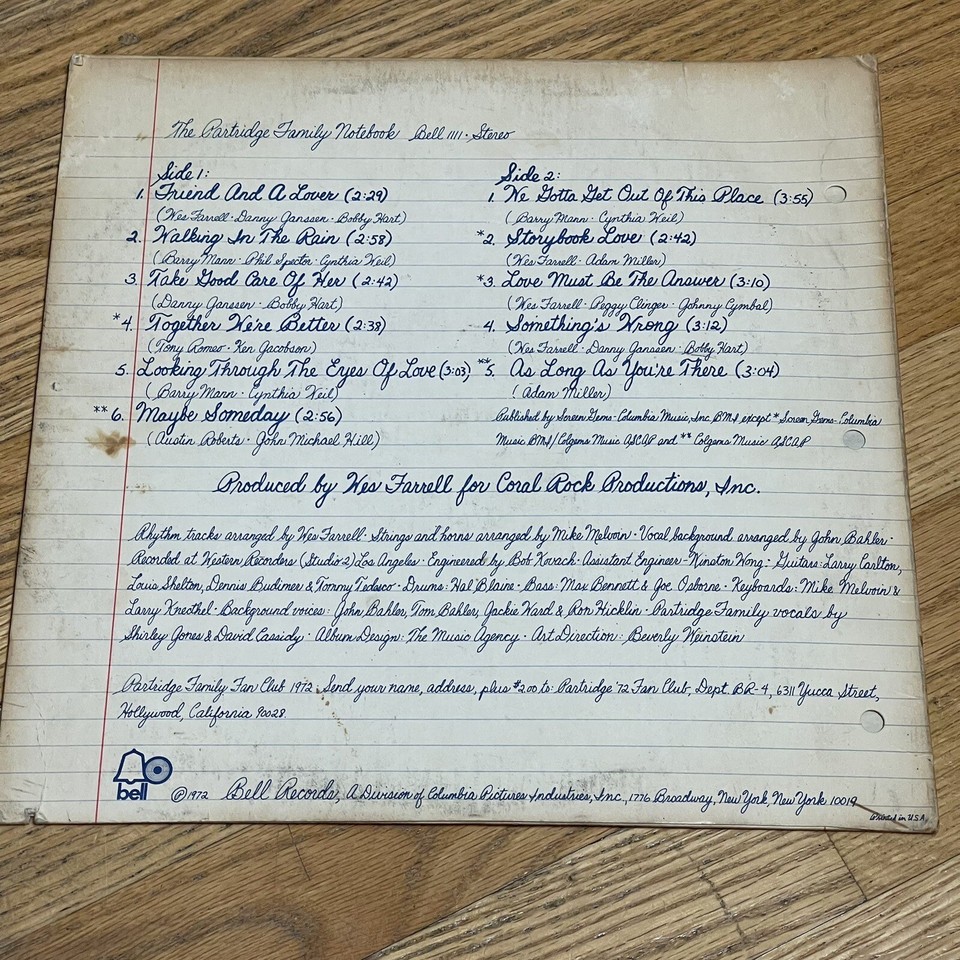 The Partridge Family Notebook Bell 1111 · Stereo
Side 1:
1. Friend And A Lover (2:29)
(Wes Farrell · Danny Janssen · Bobby Hart)
2. Walking In The Rain (2:58)
(Barry Mann · Phil Spector · Cynthia Weil)
3. Take Good Care Of Her (2:42)
(Danny Janssen · Bobby Hart)
*4. Together We're Better (2:38)
(Tony Romeo · Ken Jacobson)
5. Looking Through The Eyes Of Love (3:03)
(Barry Mann · Cynthia Weil)
**6. Maybe Someday (2:56)
(Austin Roberts · John Michael Hill)
Side 2:
1. We Gotta Get Out Of This Place (3:55)
(Barry Mann · Cynthia Weil)
*2. Storybook Love (2:42)
(Wes Farrell · Adam Miller)
*3. Love Must Be The Answer (3:10)
(Wes Farrell · Peggy Clinger · Johnny Cymbal)
4. Something's Wrong (3:12)
(Wes Farrell · Danny Janssen · Bobby Hart)
**5. As Long As You're There (3:04)
(Adam Miller)
Published by Screen Gems-Columbia Music, Inc. BMI except * Screen Gems-Columbia
Music BMI/Colgems Music ASCAP and ** Colgems Music ASCAP
Produced by Wes Farrell for Coral Rock Productions, Inc.
Rhythm tracks arranged by Wes Farrell · Strings and horns arranged by Mike Melvoin · Vocal background arranged by John Bahler ·
Recorded at Western Recorders (Studio 2) Los Angeles · Engineered by Bob Kovach · Assistant Engineer - Winston Wong · Guitars: Larry Carlton,
Louis Shelton, Dennis Budimer & Tommy Tedesco · Drums: Hal Blaine · Bass: Max Bennett & Joe Osborne · Keyboards: Mike Melvoin &
Larry Knecthel · Background voices: John Bahler, Tom Bahler, Jackie Ward & Ron Hicklin · Partridge Family vocals by
Shirley Jones & David Cassidy · Album Design: The Music Agency · Art Direction: Beverly Weinstein
Partridge Family Fan Club 1972. Send your name, address, plus $2.00 to: Partridge '72 Fan Club, Dept. BR-4, 6311 Yucca Street,
Hollywood, California 90028.
bell
Ⓟ1972 Bell Records, A Division of Columbia Pictures Industries, Inc., 1776 Broadway, New York, New York 10019
Printed in U.S.A.